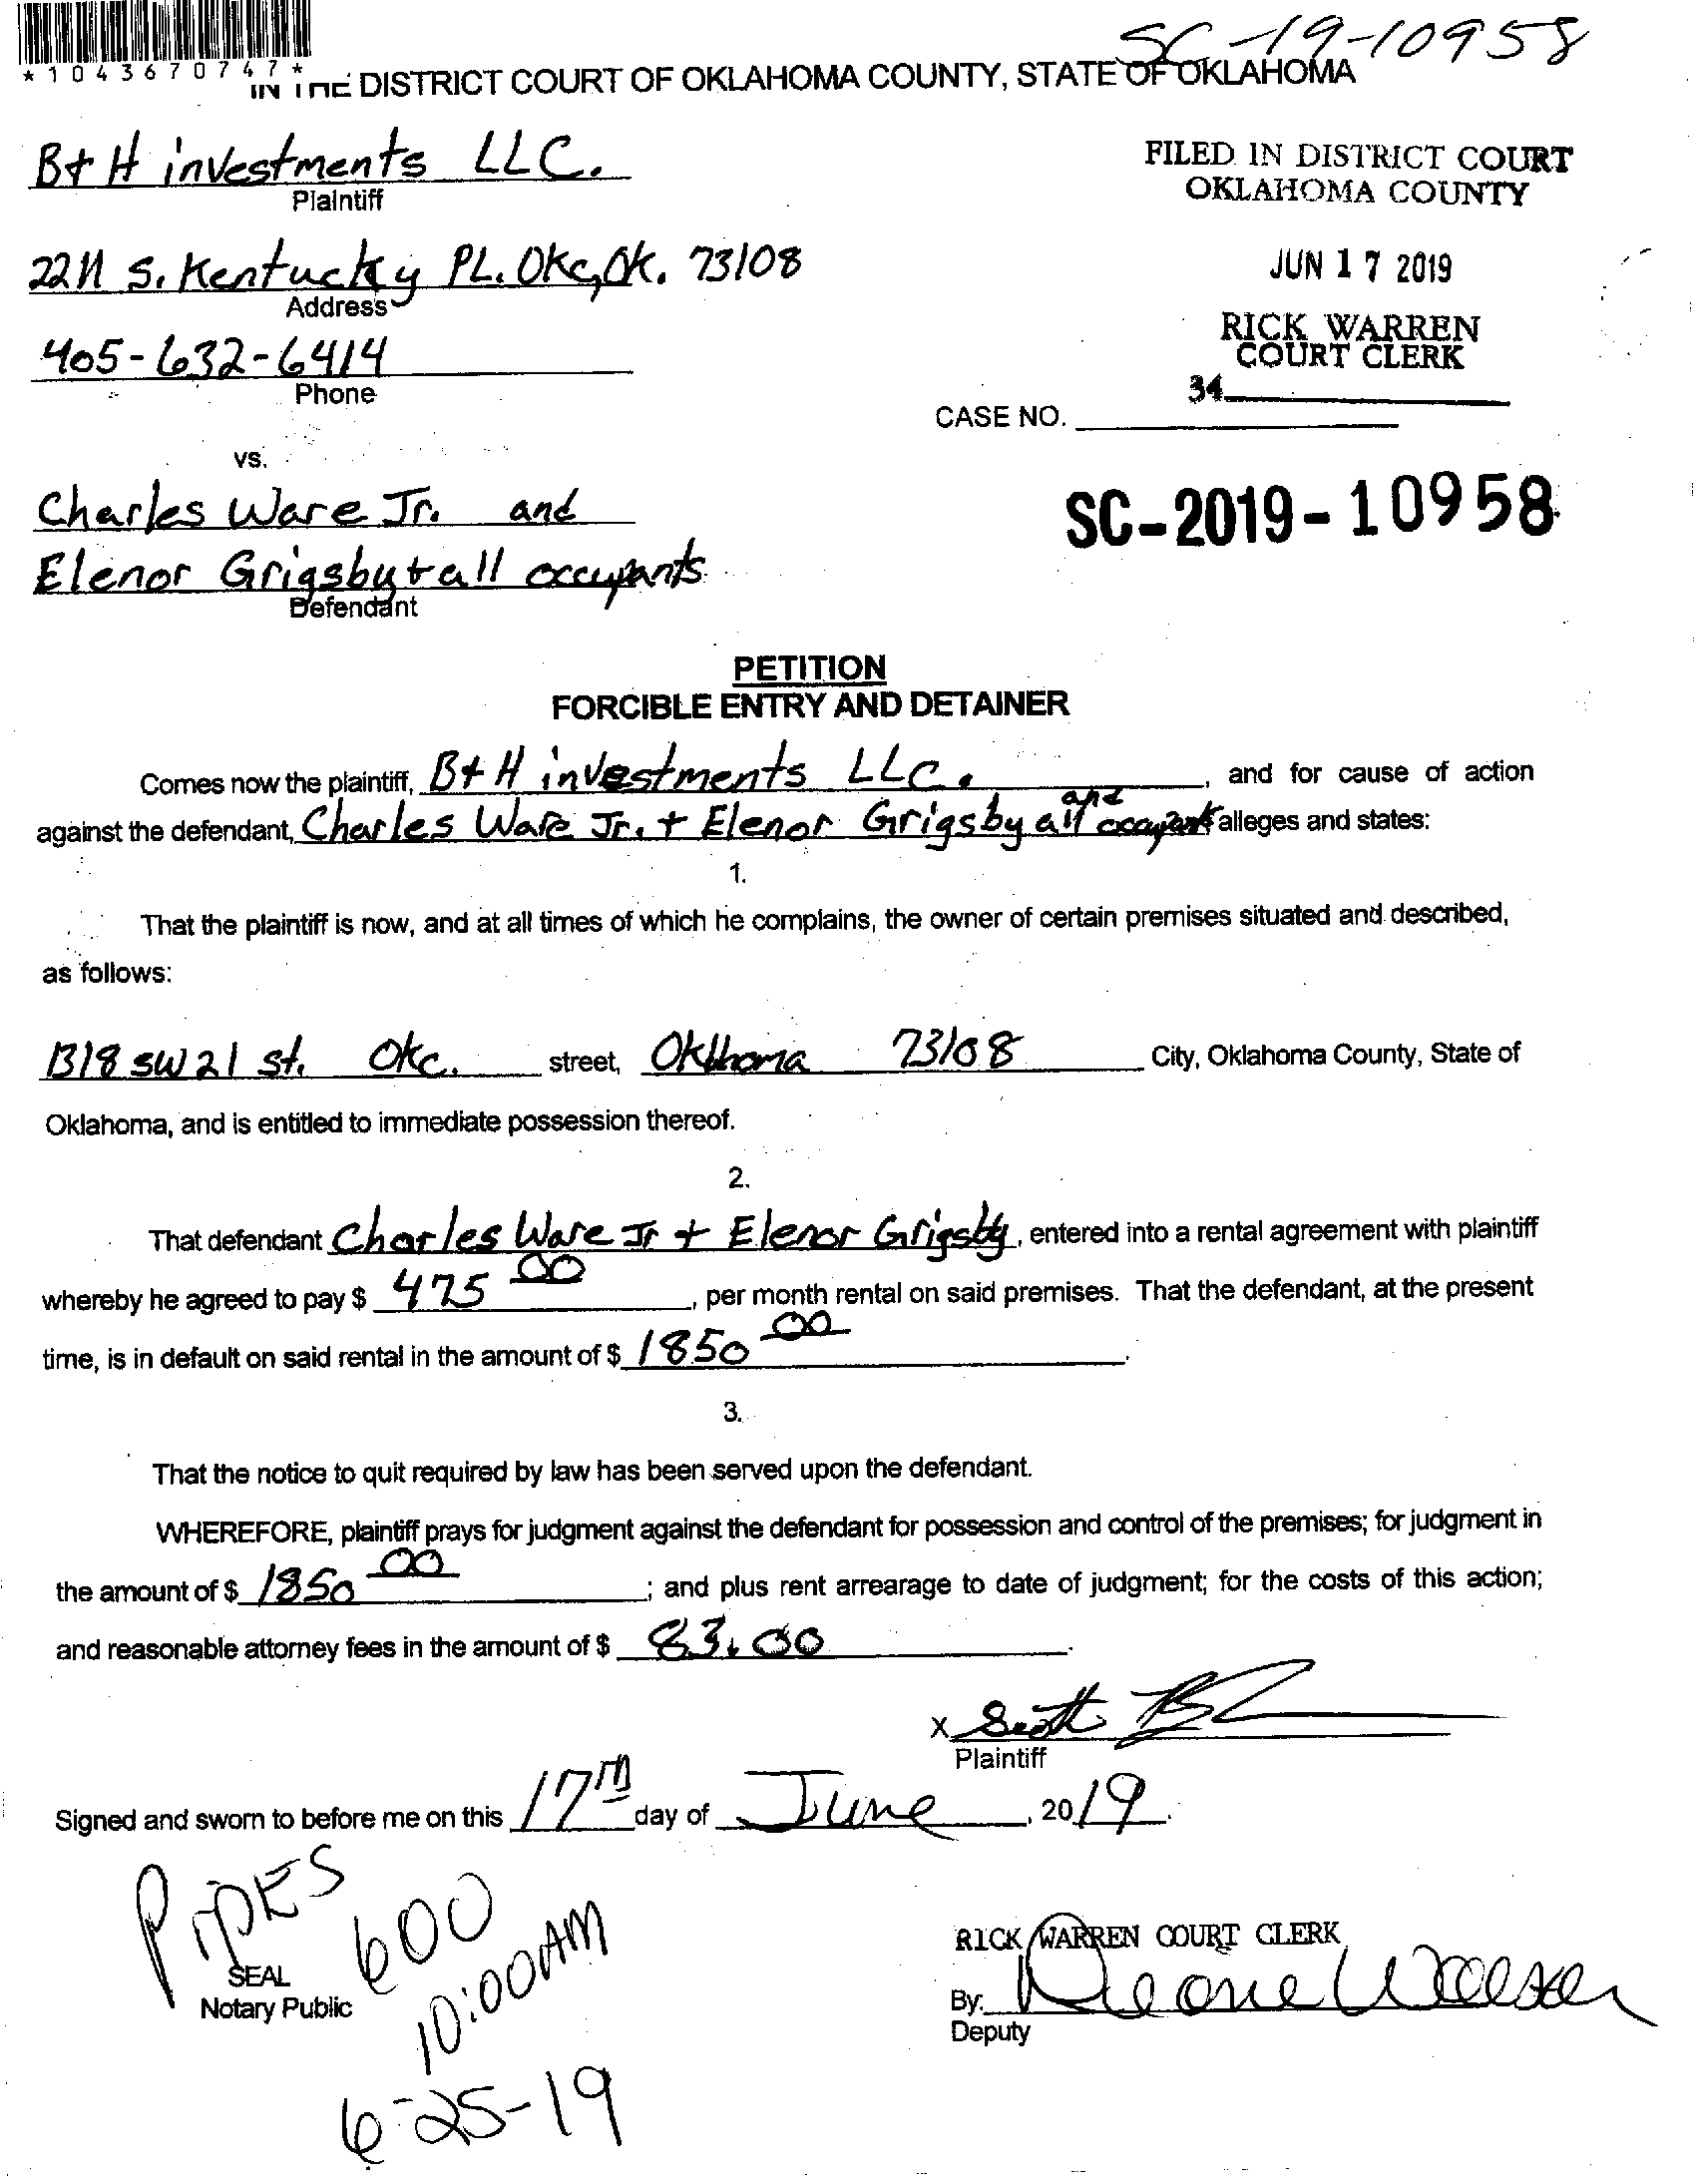 SC-19-10958
*1043670747*
IN THE DISTRICT COURT OF OKLAHOMA COUNTY, STATE OF OKLAHOMA
B+H investments LLC.
Plaintiff
2211 S. Kentucky PL. OKC, OK. 73108
Address
405-632-6414
Phone
vs.
Charles Ware Jr. and
Elenor Grigsby + all occupants
Defendant
FILED IN DISTRICT COURT
OKLAHOMA COUNTY
JUN 17 2019
RICK WARREN
COURT CLERK
34
CASE NO.
SC-2019-10958
PETITION
FORCIBLE ENTRY AND DETAINER
Comes now the plaintiff, B+H investments LLC. , and for cause of action
against the defendant, Charles Ware Jr. + Elenor Grigsby and all occupants alleges and states:
1.
That the plaintiff is now, and at all times of which he complains, the owner of certain premises situated and described,
as follows:
1318 SW 21 st. OKC. street, Oklhoma 73108 City, Oklahoma County, State of
Oklahoma, and is entitled to immediate possession thereof.
2.
That defendant Charles Ware Jr + Elenor Grigsby, entered into a rental agreement with plaintiff
whereby he agreed to pay $ 475 00 , per month rental on said premises. That the defendant, at the present
time, is in default on said rental in the amount of $ 1850 00 .
3.
That the notice to quit required by law has been served upon the defendant.
WHEREFORE, plaintiff prays for judgment against the defendant for possession and control of the premises; for judgment in
the amount of $ 1850 00 ; and plus rent arrearage to date of judgment; for the costs of this action;
and reasonable attorney fees in the amount of $ 83.00 .
X Scott
Plaintiff
Signed and sworn to before me on this 17th day of June , 2019.
PIPES
600
10:00AM
6-25-19
SEAL
Notary Public
RICK WARREN COURT CLERK
By:
Deputy